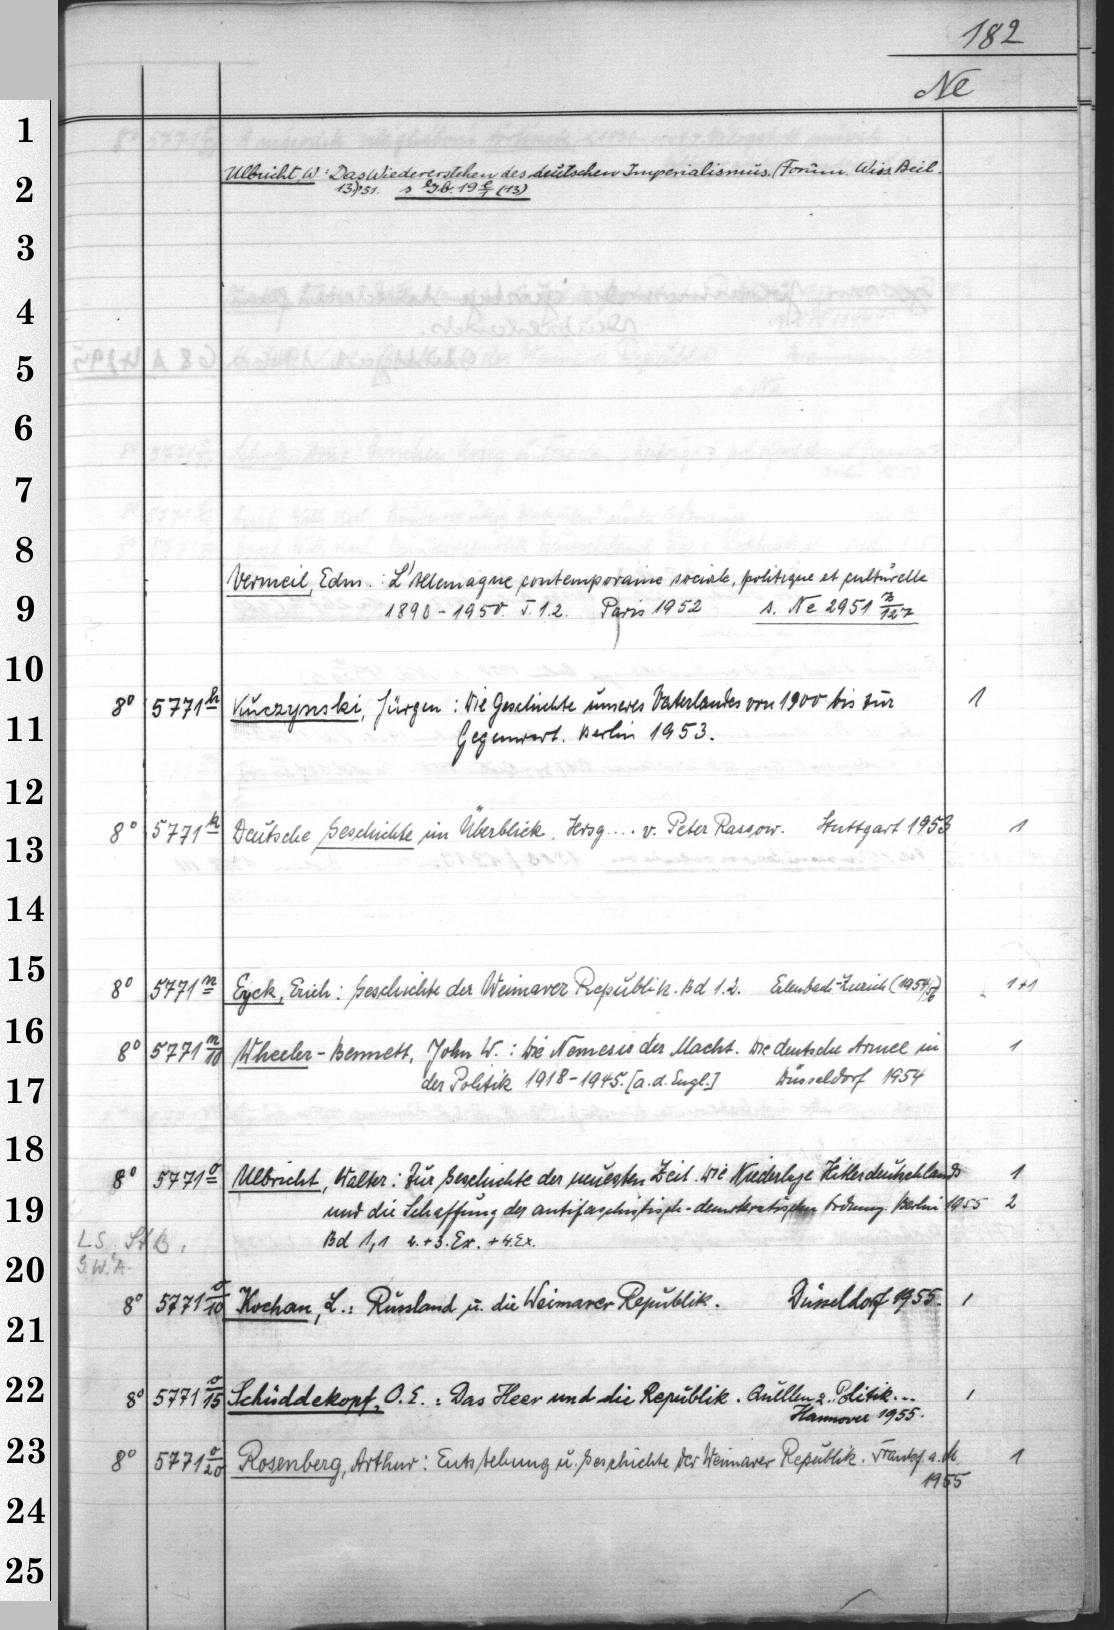 182
Ne
1
Ulbricht, W.: Das Wiedererstehen des deutschen Imperialismus. (Forum. Wiss. Beil.
2
13) '51. s
3
4
5
6
7
8
Vermeil, Edm.: L'Allemagne contemporaine sociale, politique et culturelle
9
1890-1950. T. 1.2. Paris 1952 s. Ne 2951 z/127
10
8° 5771 h Kuczynski, Jürgen: Die Geschichte unseres Vaterlandes von 1900 bis zur 1
11
Gegenwart. Berlin 1953.
12
8° 5771 k Deutsche Geschichte im Überblick. Hrsg.... v. Peter Rassow. Stuttgart 1953 1
13
14
15
8° 5771 m Eyck, Erich: Geschichte der Weimarer Republik. Bd 1.2. Erlenbach-Zürich (1954/56) 1+1
16
8° 5771 n/10 Wheeler-Bennett, John W.: Die Nemesis der Macht. Die deutsche Armee in 1
17
der Politik 1918-1945. [a. d. Engl.] Düsseldorf 1954
18
8° 5771 o Ulbricht, Walter: Zur Geschichte der neuesten Zeit. Die Niederlage Hitlerdeutschlands 1
19
und die Schaffung der antifaschistisch-demokratischen Ordnung. Berlin 1955 2
LS. Bd 1,1 2.+3. Ex. + 4. Ex.
20
G.W.A.
8° 5771 o/10 Kochan, L.: Russland u. die Weimarer Republik. Düsseldorf 1955. 1
21
22
8° 5771 o/15 Schüddekopf, O. E.: Das Heer und die Republik. Quellen z. Politik...  1
Hannover 1955.
23
8° 5771 o/20 Rosenberg, Arthur: Entstehung u. Geschichte der Weimarer Republik. Frankf. a. M. 1
1955
24
25